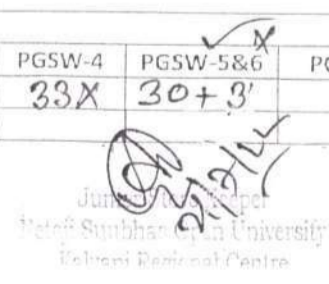 PGSW-4 PGSW-5&6
33X 30+3'
Junior Store Keeper
Netaji Subhas Open University
Kalyani Regional Centre